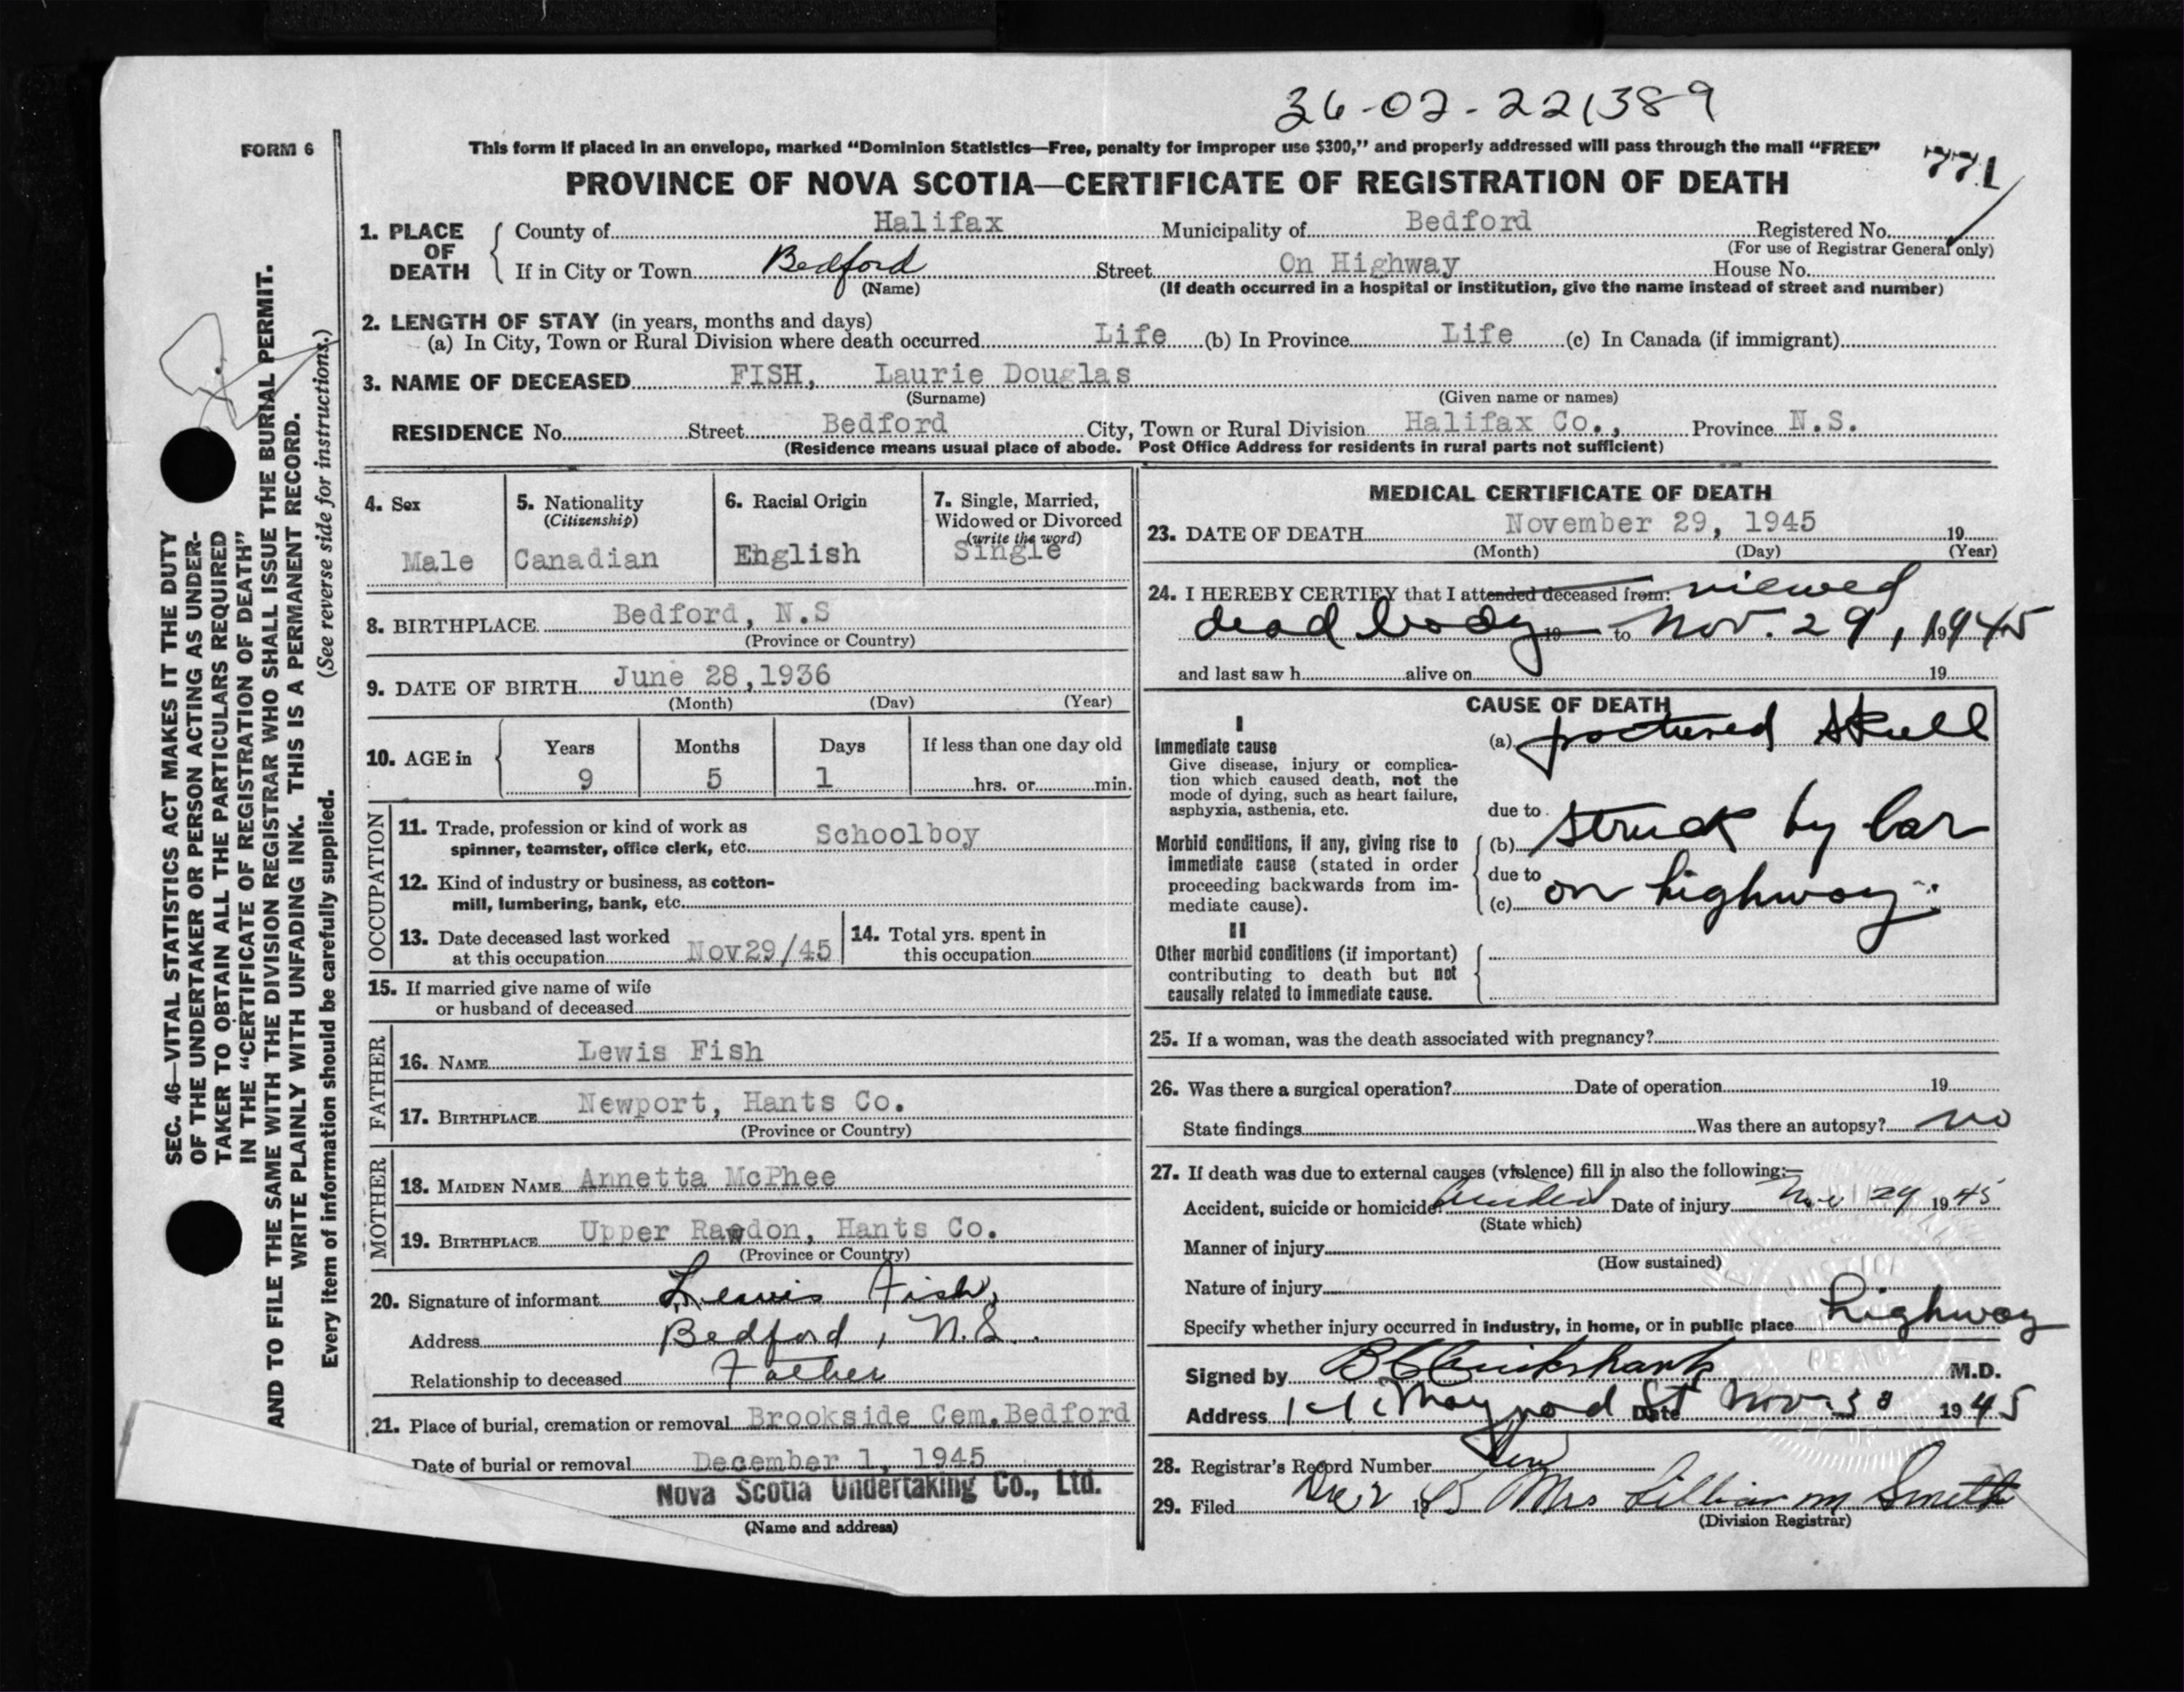 36-02-221389
FORM 6
This form if placed in an envelope, marked "Dominion Statistics—Free, penalty for improper use $300," and properly addressed will pass through the mail "FREE"
771
PROVINCE OF NOVA SCOTIA—CERTIFICATE OF REGISTRATION OF DEATH
1. PLACE OF DEATH
County of Halifax Municipality of Bedford Registered No.
(For use of Registrar General only)
If in City or Town Bedford Street On Highway House No.
(Name) (If death occurred in a hospital or institution, give the name instead of street and number)
2. LENGTH OF STAY (in years, months and days)
(a) In City, Town or Rural Division where death occurred Life (b) In Province Life (c) In Canada (if immigrant)
3. NAME OF DECEASED FISH, Laurie Douglas
(Surname) (Given name or names)
RESIDENCE No. Street Bedford City, Town or Rural Division Halifax Co., Province N.S.
(Residence means usual place of abode. Post Office Address for residents in rural parts not sufficient)
4. Sex
Male
5. Nationality
(Citizenship)
Canadian
6. Racial Origin
English
7. Single, Married,
Widowed or Divorced
(write the word)
Single
8. BIRTHPLACE Bedford, N.S
(Province or Country)
9. DATE OF BIRTH June 28,1936
(Month) (Day) (Year)
10. AGE in
Years Months Days If less than one day old
9 5 1 hrs. or min.
OCCUPATION
11. Trade, profession or kind of work as
spinner, teamster, office clerk, etc. Schoolboy
12. Kind of industry or business, as cotton-
mill, lumbering, bank, etc.
13. Date deceased last worked
at this occupation Nov29/45
14. Total yrs. spent in
this occupation
15. If married give name of wife
or husband of deceased
FATHER
16. NAME Lewis Fish
17. BIRTHPLACE Newport, Hants Co.
(Province or Country)
MOTHER
18. MAIDEN NAME Annetta McPhee
19. BIRTHPLACE Upper Rawdon, Hants Co.
(Province or Country)
20. Signature of informant Lewis Fish,
Address Bedford, N.S.
Relationship to deceased Father
21. Place of burial, cremation or removal Brookside Cem. Bedford
Date of burial or removal December 1, 1945
Nova Scotia Undertaking Co., Ltd.
(Name and address)
MEDICAL CERTIFICATE OF DEATH
23. DATE OF DEATH November 29, 1945 19
(Month) (Day) (Year)
24. I HEREBY CERTIFY that I attended deceased from: viewed
dead body 19 to Nov. 29, 1945
and last saw h alive on 19
CAUSE OF DEATH
I
Immediate cause
Give disease, injury or complica-
tion which caused death, not the
mode of dying, such as heart failure,
asphyxia, asthenia, etc.
(a) fractured skull
due to
Morbid conditions, if any, giving rise to
immediate cause (stated in order
proceeding backwards from im-
mediate cause).
(b) struck by car
due to
(c) on highway.
II
Other morbid conditions (if important)
contributing to death but not
causally related to immediate cause.
25. If a woman, was the death associated with pregnancy?
26. Was there a surgical operation? Date of operation 19
State findings Was there an autopsy? no
27. If death was due to external causes (violence) fill in also the following:—
Accident, suicide or homicide? Accident Date of injury Nov 29 1945
(State which)
Manner of injury
(How sustained)
Nature of injury
Specify whether injury occurred in industry, in home, or in public place highway
JUSTICE
PEACE
Signed by M.D.
Address Maynard St Date Nov 30 1945
28. Registrar's Record Number
29. Filed Dec 2 1945 Mrs Lillian M Smith
(Division Registrar)
SEC. 46—VITAL STATISTICS ACT MAKES IT THE DUTY
OF THE UNDERTAKER OR PERSON ACTING AS UNDER-
TAKER TO OBTAIN ALL THE PARTICULARS REQUIRED
IN THE "CERTIFICATE OF REGISTRATION OF DEATH"
AND TO FILE THE SAME WITH THE DIVISION REGISTRAR WHO SHALL ISSUE THE BURIAL PERMIT.
WRITE PLAINLY WITH UNFADING INK. THIS IS A PERMANENT RECORD.
Every item of information should be carefully supplied. (See reverse side for instructions.)